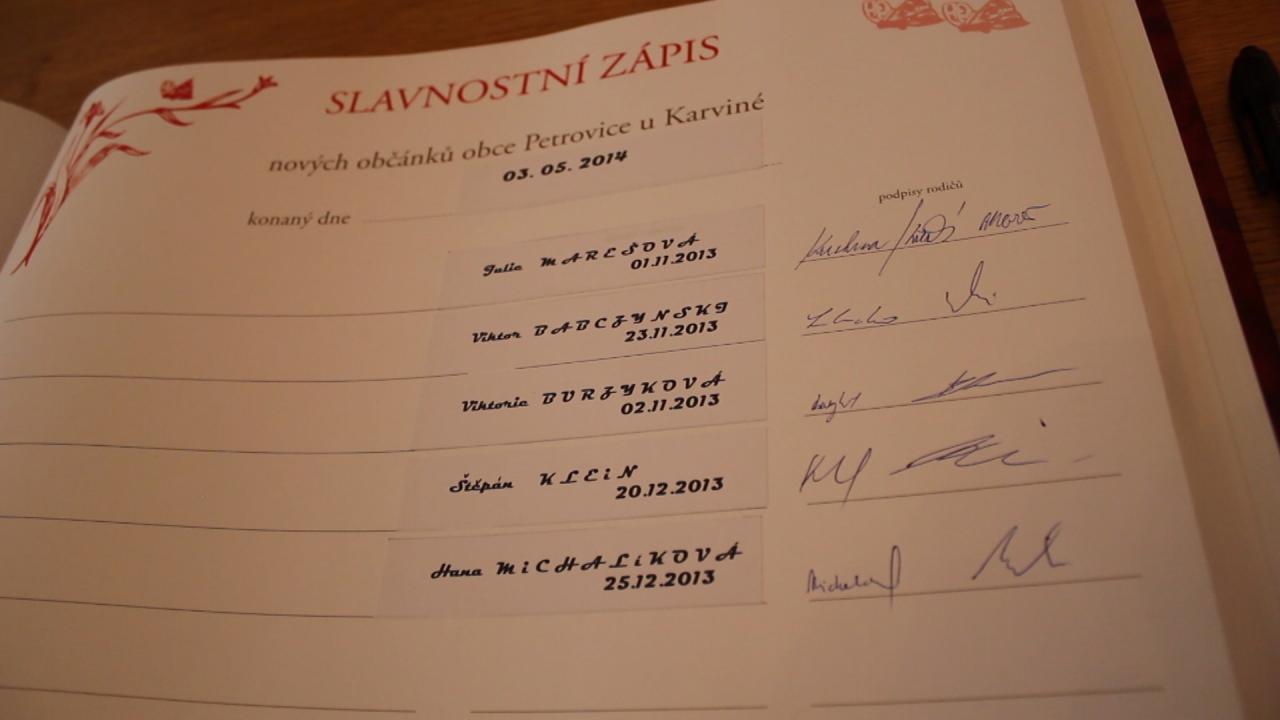 SLAVNOSTNÍ ZÁPIS
nových občánků obce Petrovice u Karviné
03. 05. 2014
konaný dne
podpisy rodičů
Julie MAREŠOVÁ
01.11.2013
Viktor BABCZYNSKI
23.11.2013
Viktorie BURZYKOVÁ
02.11.2013
Štěpán KLEiN
20.12.2013
Hana MiCHALíKOVÁ
25.12.2013